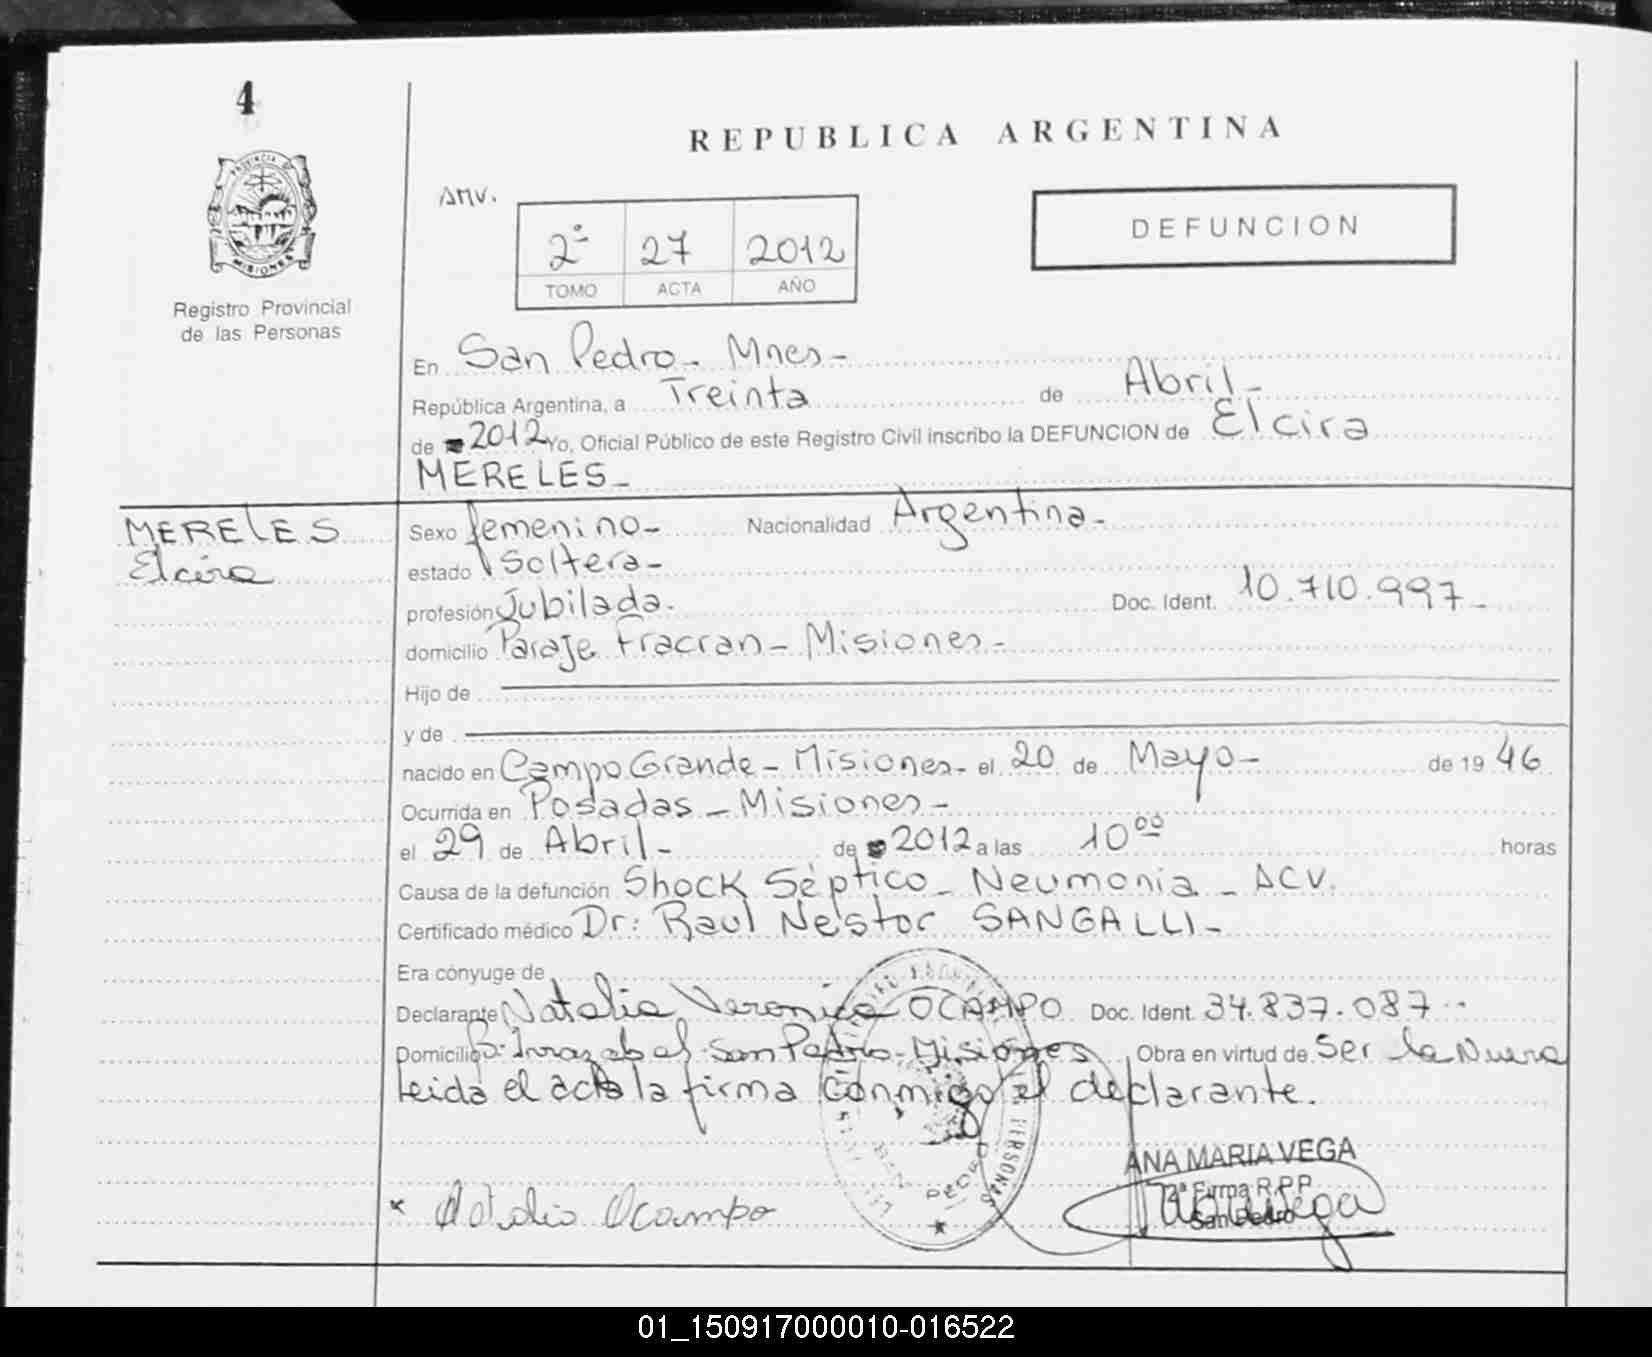 4
PROVINCIA DE
MISIONES
Registro Provincial
de las Personas
REPUBLICA ARGENTINA
AMV.
2º 27 2012
TOMO ACTA AÑO
DEFUNCION
En San Pedro - Mnes -
República Argentina, a Treinta de Abril -
de 2012 Yo, Oficial Público de este Registro Civil inscribo la DEFUNCION de Elcira
MERELES -
MERELES
Elcira
Sexo femenino - Nacionalidad Argentina -
estado Soltera -
profesión Jubilada. Doc. Ident. 10.710.997 -
domicilio Paraje Fracran - Misiones -
Hijo de
y de
nacido en Campo Grande - Misiones - el 20 de Mayo - de 19 46
Ocurrida en Posadas - Misiones -
el 29 de Abril - de 2012 a las 10 00 horas
Causa de la defunción Shock Séptico - Neumonia - ACV.
Certificado médico Dr: Raul Nestor SANGALLI -
Era cónyuge de
Declarante Natalia Veronica OCAMPO Doc. Ident. 34.837.087 -
Domicilio B: Irrazabal - San Pedro - Misiones Obra en virtud de Ser la Nuera
Leida el acta la firma conmigo el declarante.
PERSONAS
SAN PEDRO
ANA MARIA VEGA
2ª Firma R.P.P.
San Pedro
x Natalia Ocampo
01_150917000010-016522